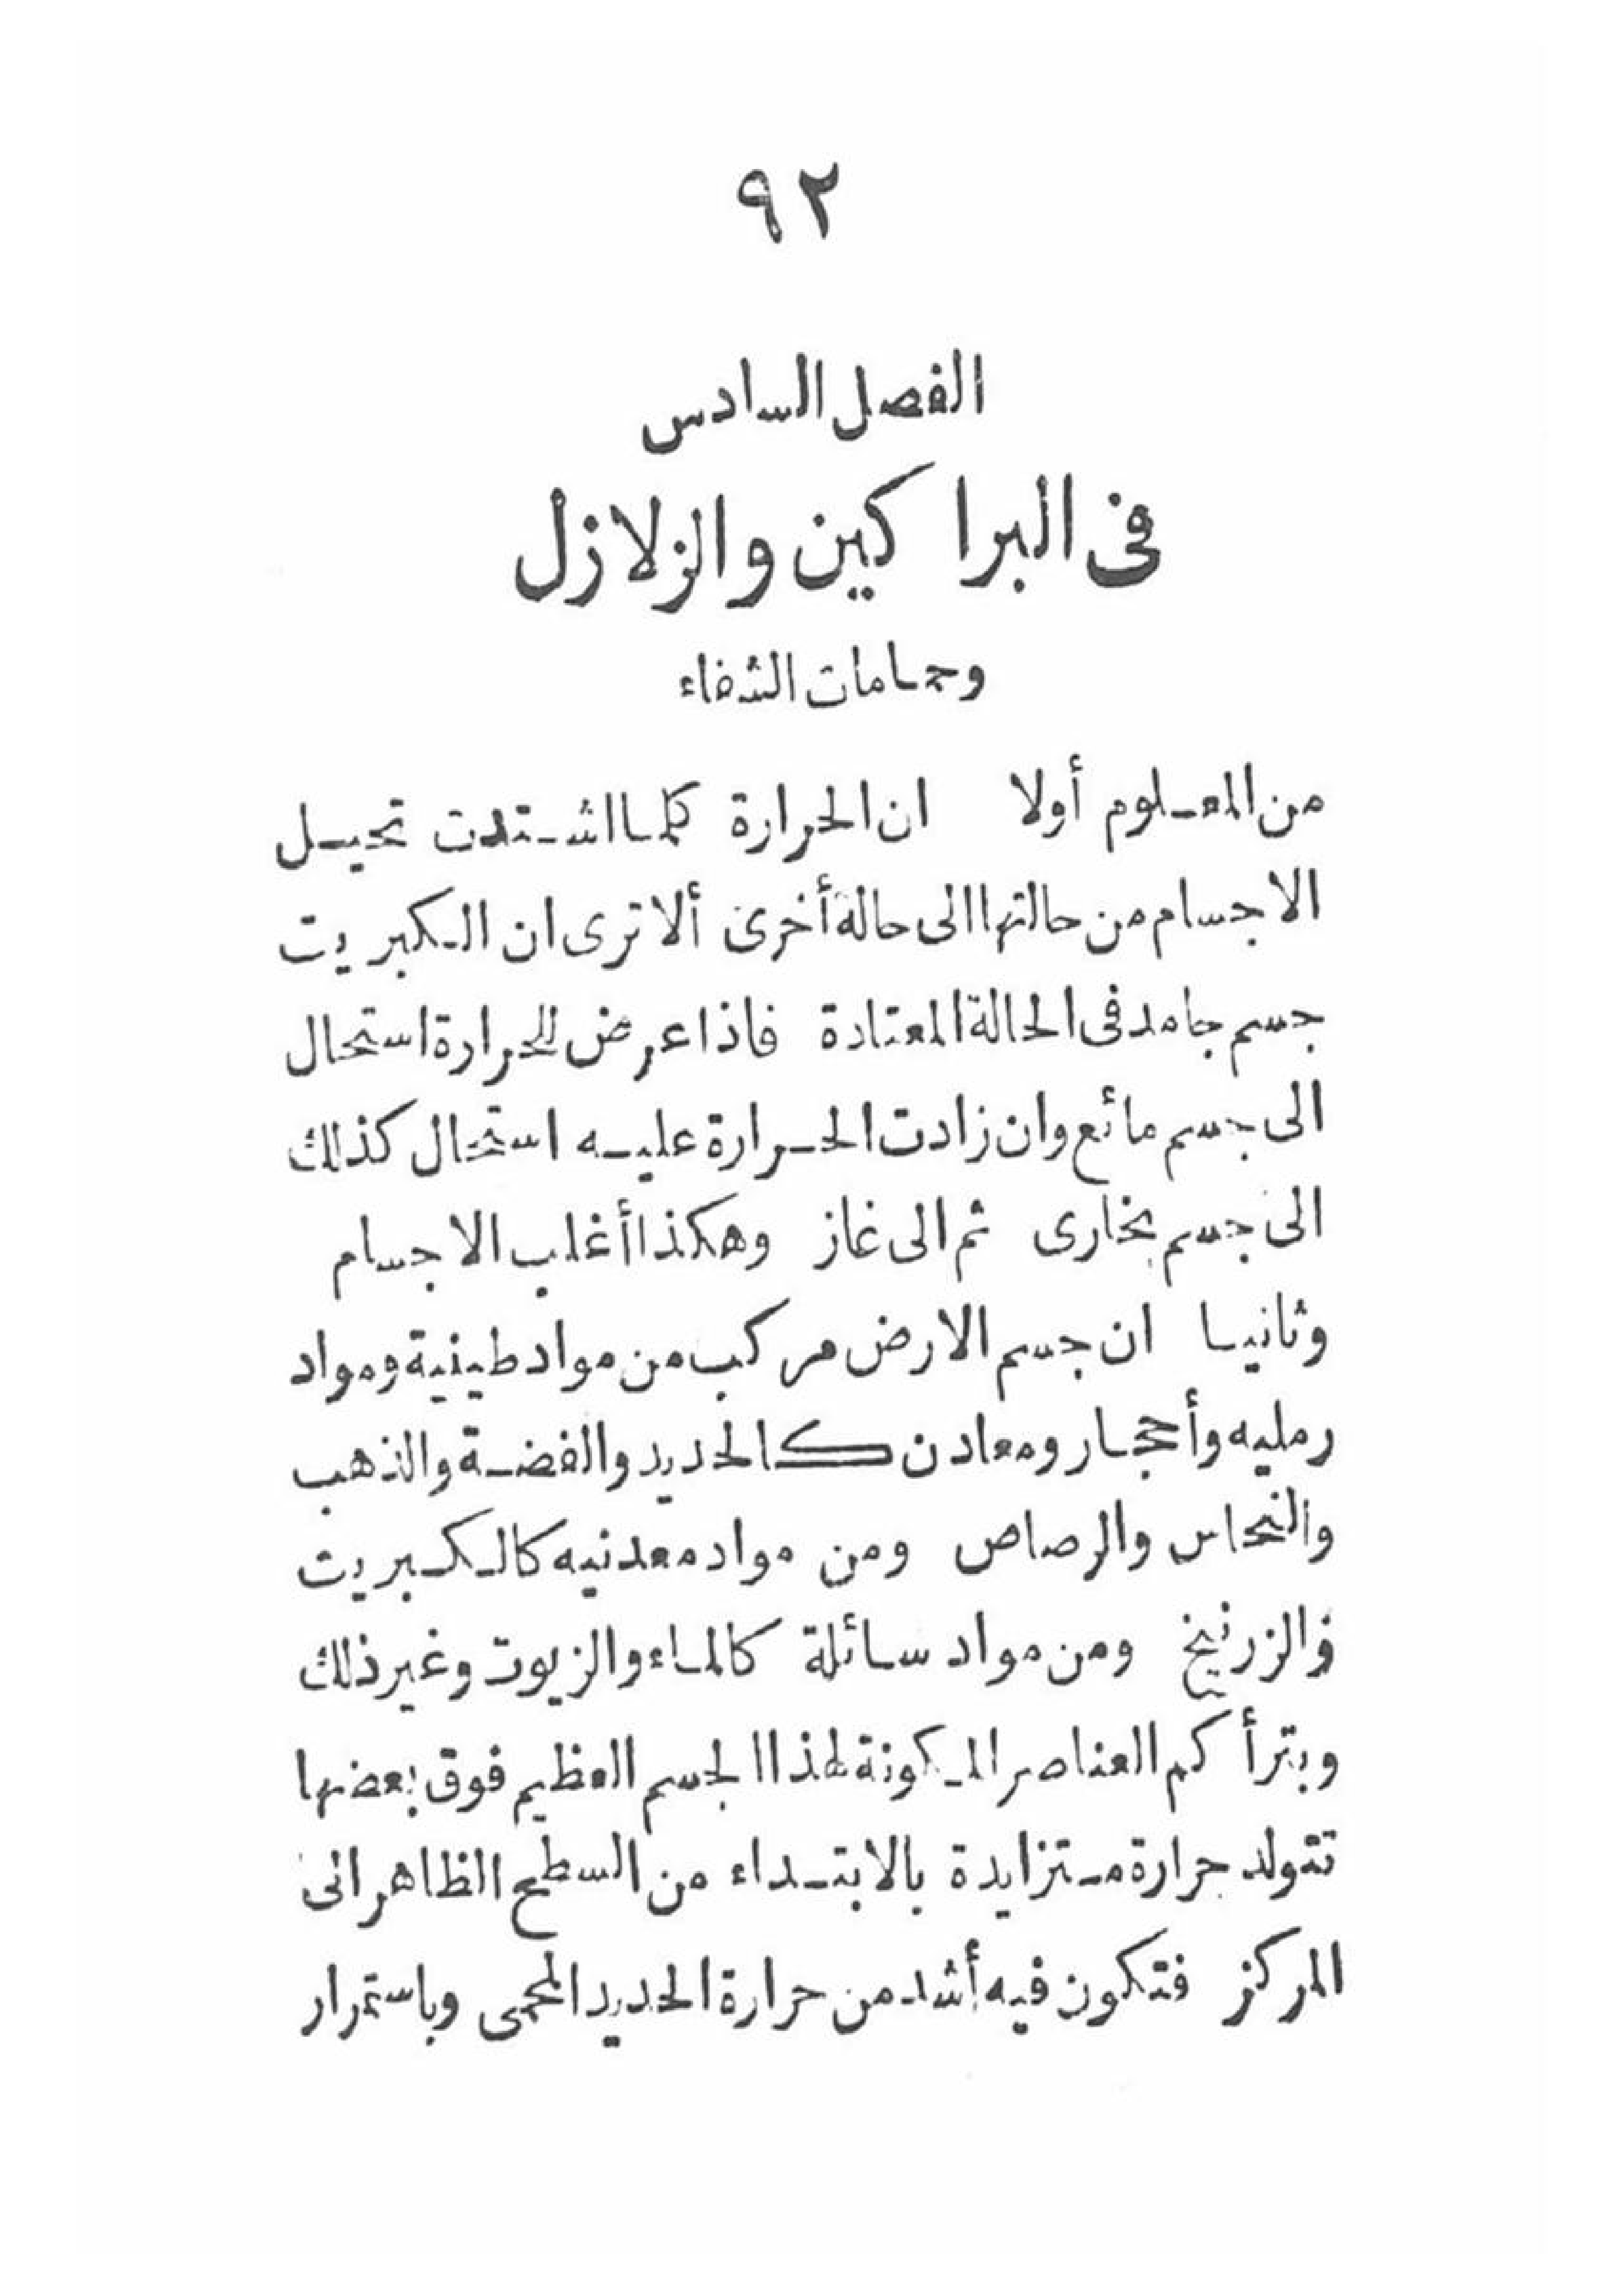 ٩٢
الفصل السادس
فى البراكين والزلازل
وحمامات الشفاء
من المعلوم أولا ان الحرارة كلما اشتدت تحيل
الاجسام من حالتها الى حالة أخرى ألا ترى ان الكبريت
جسم جامد فى الحالة المعتادة فاذا عرض للحرارة استحال
الى جسم مائع وان زادت الحرارة عليه استحال كذلك
الى جسم بخارى ثم الى غاز وهكذا أغلب الاجسام
وثانيا ان جسم الارض مركب من مواد طينية ومواد
رمليه وأحجار ومعادن كالحديد والفضة والذهب
والنحاس والرصاص ومن مواد معدنيه كالكبريت
والزرنيخ ومن مواد سائلة كالماء والزيوت وغير ذلك
وبترأكم العناصر المكونة لهذا الجسم العظيم فوق بعضها
تتولد حرارة متزايدة بالابتداء من السطح الظاهر الى
المركز فتكون فيه أشد من حرارة الحديد المحمى وباستمرار